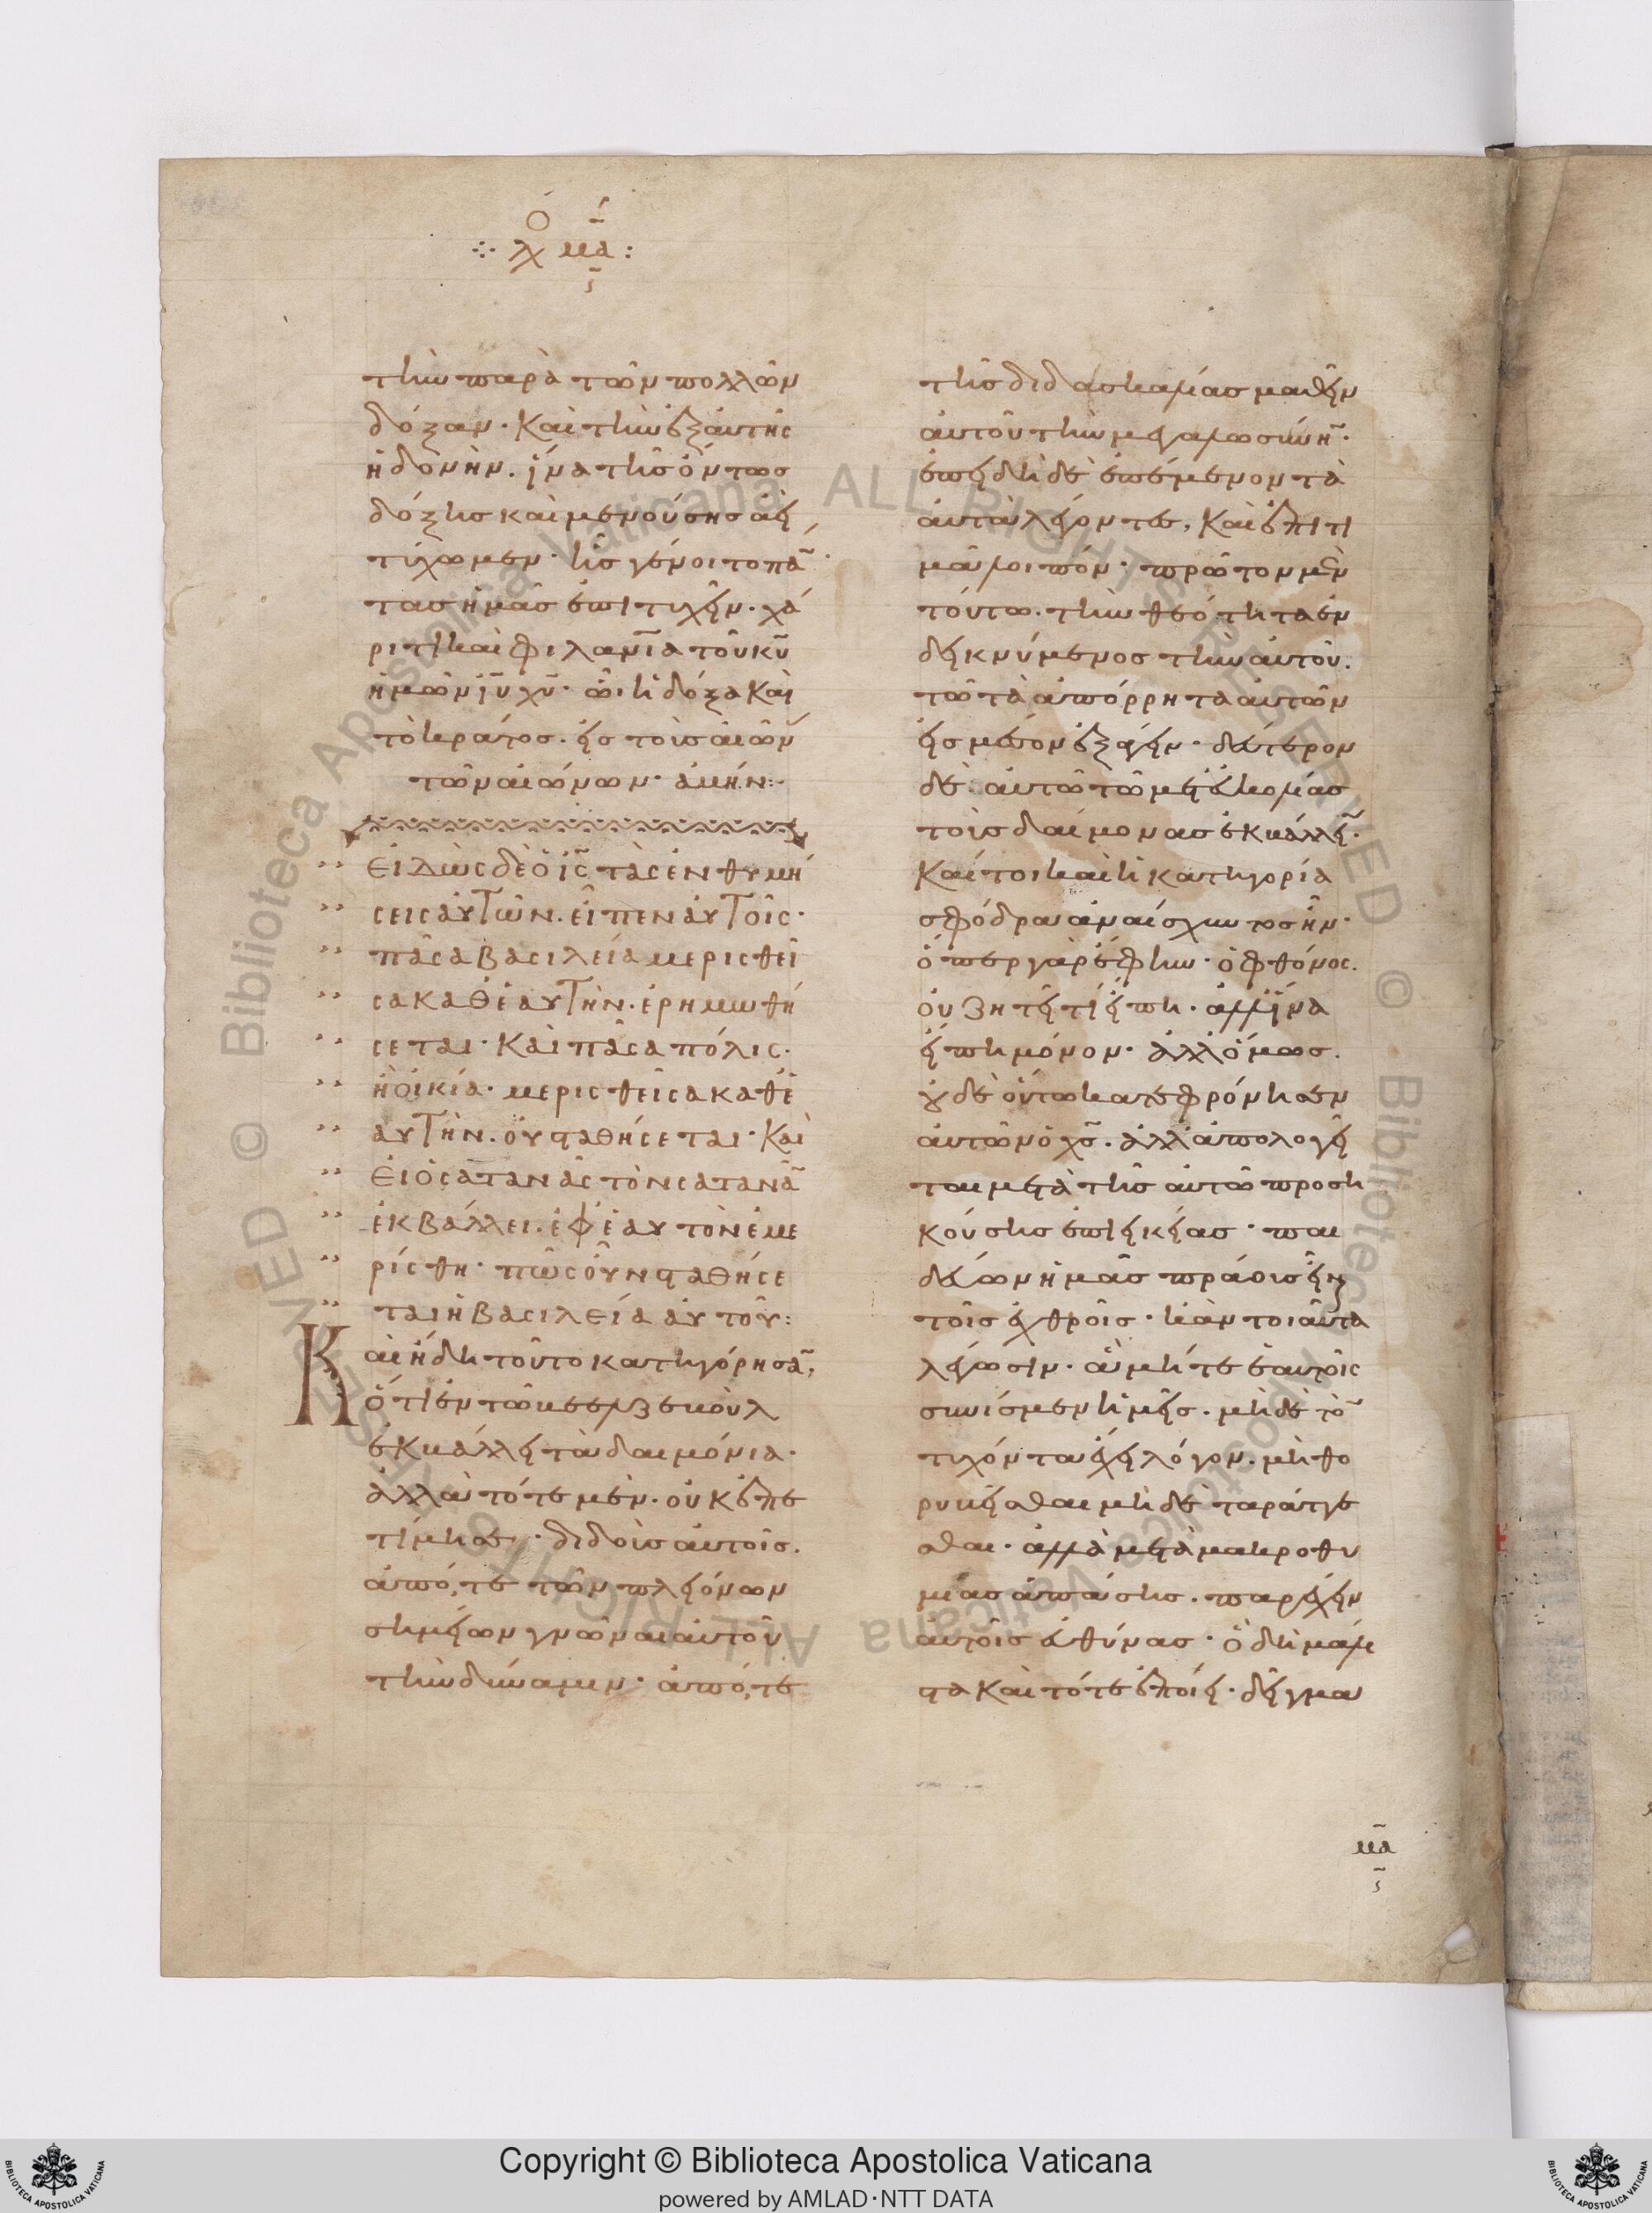 Ο
·:· λχ μα :
ϛ
τὴν παρὰ τῶν πολλῶν
δόξαν· καὶ τὴν ἐξ αὐτῆς
ἡδονήν. ἵνα τῆς ὄντως
δόξης καὶ μενούσης ἀεὶ
τύχωμεν· ἧς γένοιτο πά̅
τας ἡμᾶς ἐπιτυχεῖν. χά
ριτι καὶ φιλανί̅α τοῦ κυ̅
ἡμῶν ιυ̅ χυ̅· ὧι ἡ δόξα καὶ
τὸ κράτος. εἰς τοὺς αἰῶν
τῶν αἰώνων· ἀμήν:·
εἰδὼς δὲ ὁ ις̅ τὰς ἐνθυμή
σεις αὐτῶν. εἶπεν αὐτοῖς·
πᾶσα βασιλεία μερισθεῖ
σα καθ' ἑαυτὴν. ἐρημωθή
σεται· καὶ πᾶσα πόλις·
ἢ οἰκία· μερισθεῖσα καθ' ἑ
αυτὴν. οὐ σταθήσεται· καὶ
εἰ ὁ σατανᾶς τὸν σατανᾶ̅
ἐκβάλλει. ἐφ' ἑαυτὸν ἐμε
ρίσθη· πῶς οὖν σταθήσε
ται ἡ βασιλεία αὐτοῦ:
Καὶ ἤδη τοῦτο κατηγόρησα̅,
ὅτι ἐν τῶ βεελζεβοὺλ
ἐκβάλλει τὰ δαιμόνια·
ἀλλὰ τότε μὲν. οὐκ ἐπε
τίμησε· διδοὺς αὐτοῖς.
ἀπό, τε τῶν πλειόνων
σημείων γνῶναι αὐτοῦ
τὴν δύναμιν· ἀπό, τε
τῆς διδασκαλίας μαθεῖν
αὐτοῦ τὴν μεγαλωσύνη̅·
ἐπειδὴ δὲ ἐπέμενον τὰ
αὐτὰ λέγοντες, καὶ ἐπιτι
μᾶ λοιπόν· πρῶτον μὲν
τούτω. τὴν θεότητα ἐν
δεικνύμενος τὴν αὐτοῦ.
τῶ τὰ ἀπόρρητα αὐτῶν
εἰς μέσον ἐξάγειν· δεύτερον
δὲ αὐτῶ τῶ μετ' εὐκολίας
τοὺς δαίμονας ἐκβάλλει̅·
καίτοι καὶ ἡ κατηγορία
σφόδρα ἀναίσχυντος ἦν·
ὅπερ γὰρ ἔφην· ὁ φθόνος.
οὐ ζητεῖ τί εἴπη· ἀλλ' ἵνα
εἴπη μόνον· ἀλλ' ὅμως.
οὐδὲ οὕτω κατεφρόνησεν
αὐτῶν ὁ χς̅. ἀλλ' ἀπολογεῖ
ται μετὰ τῆς αὐτῶ προση
κούσης ἐπιεικείας· παι
δεύων ἡμᾶς πράους εἶναι
τοῖς ἐχθροῖς· κἂν τοιαῦτα
λέγωσιν· ἃ μήτε ἑαυτοῖς
συνίσμεν ἡμεῖς. μηδὲ τὸ̅
τυχόντα ἔχει λόγον. μὴ θο
ρυβεῖσθαι μηδὲ ταράττε
σθαι· ἀλλὰ μετὰ μακροθυ
μίας ἁπάσης. παρέχειν
αὐτοῖς εὐθύνας· ὃ δὴ μάλι
στα καὶ τότε ἐποίει· δεῖγμα
μα
ϛ
Copyright © Biblioteca Apostolica Vaticana
powered by AMLAD·NTT DATA